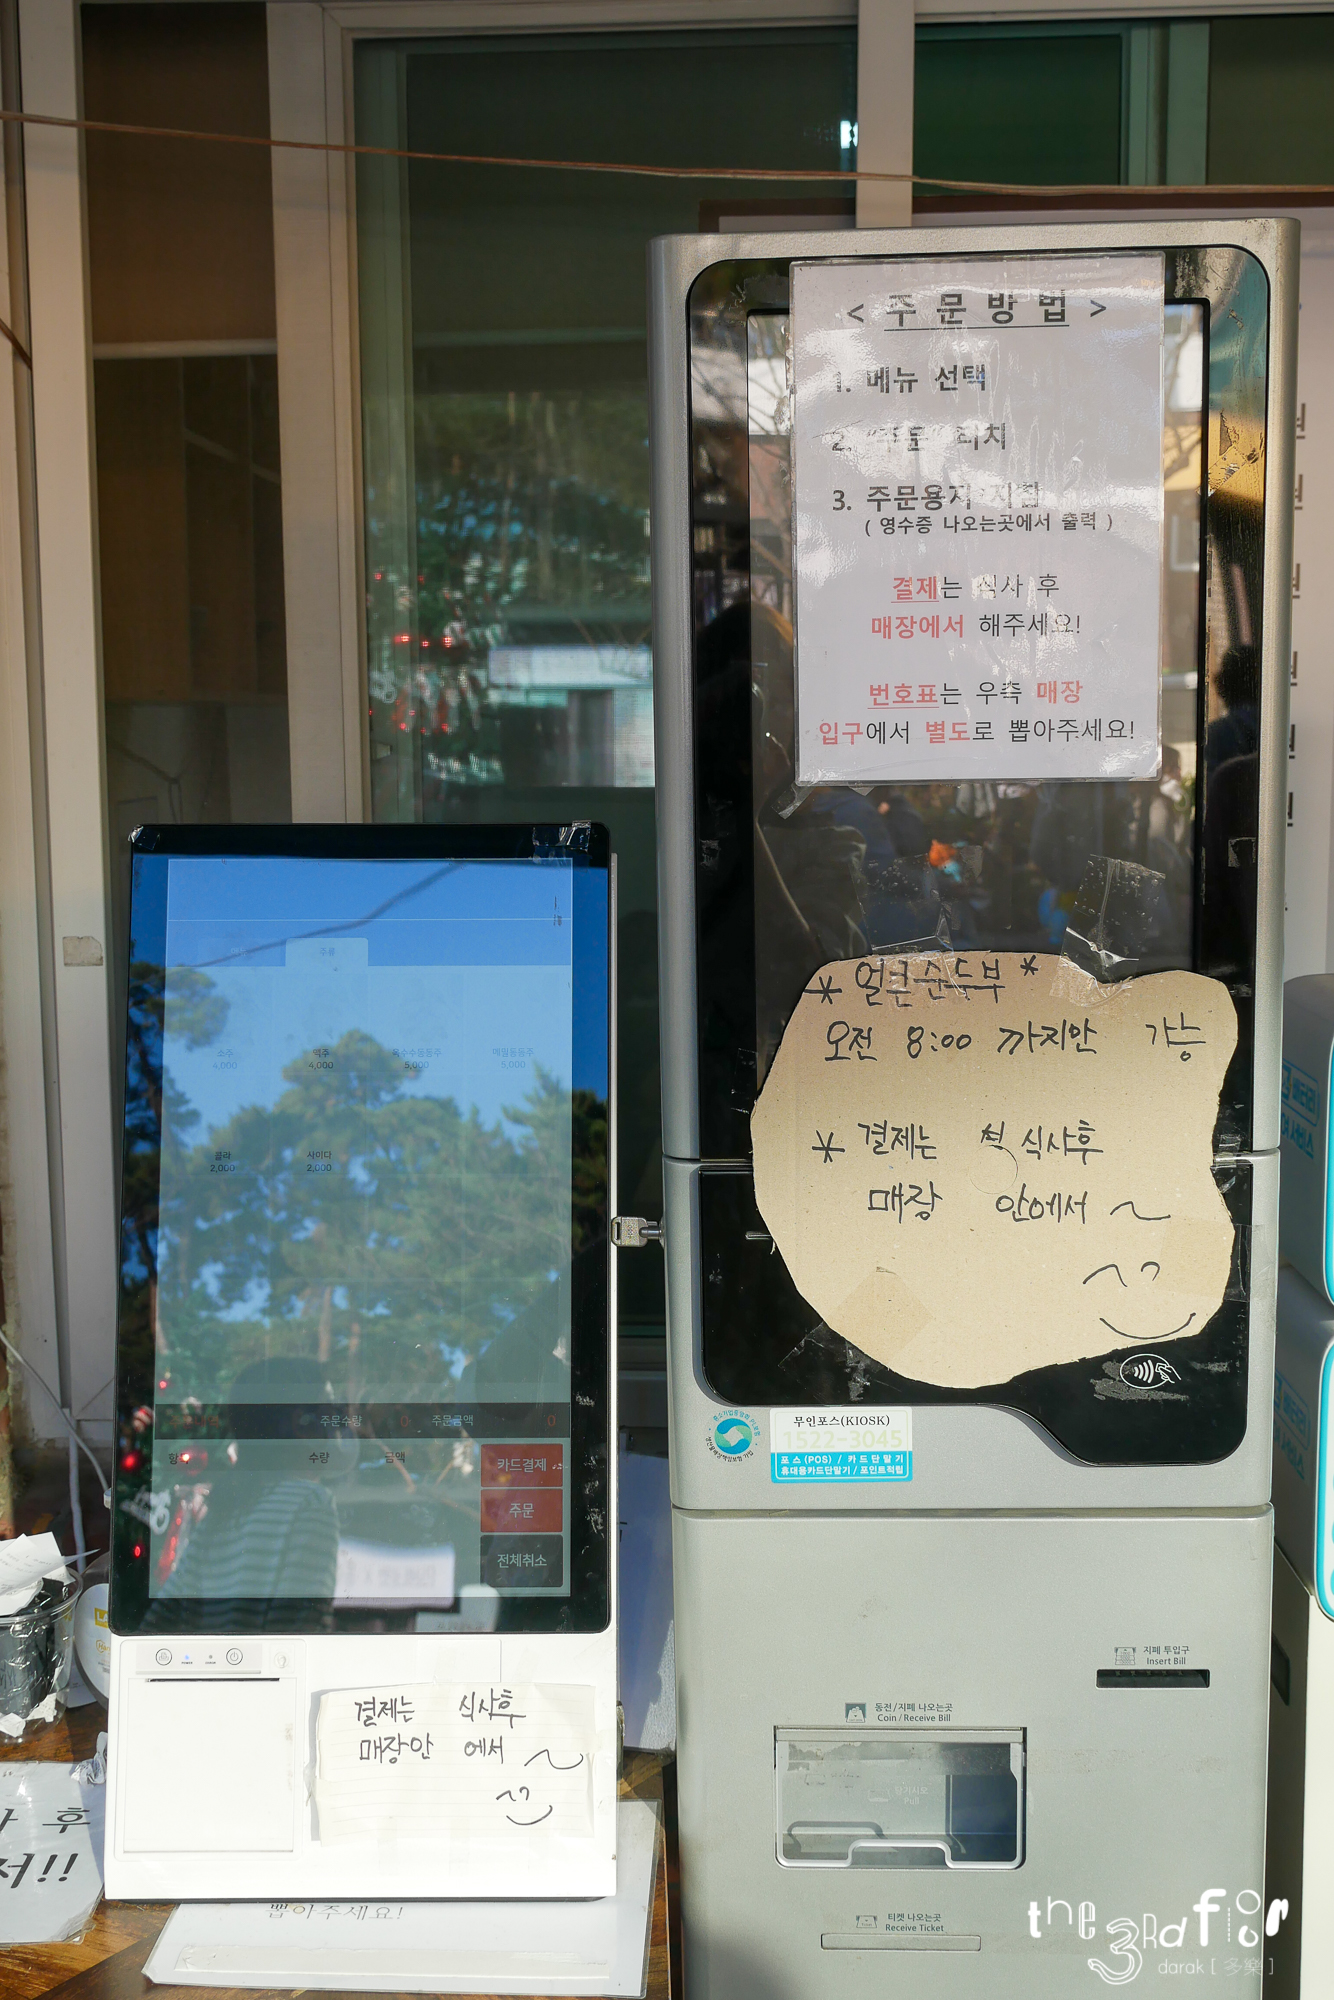 < 주 문 방 법 >
1. 메뉴 선택
2. "주문" 터치
3. 주문용지 지참
( 영수증 나오는곳에서 출력 )
결제는 식사 후
매장에서 해주세요!
번호표는 우측 매장
입구에서 별도로 뽑아주세요!
* 얼큰순두부 *
오전 8:00 까지만 가능
* 결제는 식사후
매장 안에서 ~
무인포스(KIOSK)
1522-3045
포스(POS) / 카드단말기
휴대용카드단말기 / 포인트적립
지폐 투입구
Insert Bill
동전/지폐 나오는곳
Coin / Receive Bill
당기시오
Pull
티켓 나오는곳
Receive Ticket
주류
소주 맥주 옥수수동동주 메밀동동주
4,000 4,000 5,000 5,000
콜라 사이다
2,000 2,000
주문수량 0 주문금액 0
수량 금액
카드결제
주문
전체취소
결제는 식사후
매장안 에서 ~
후
서!!
뽑아주세요!
the 3rd floor
darak [ 多樂 ]